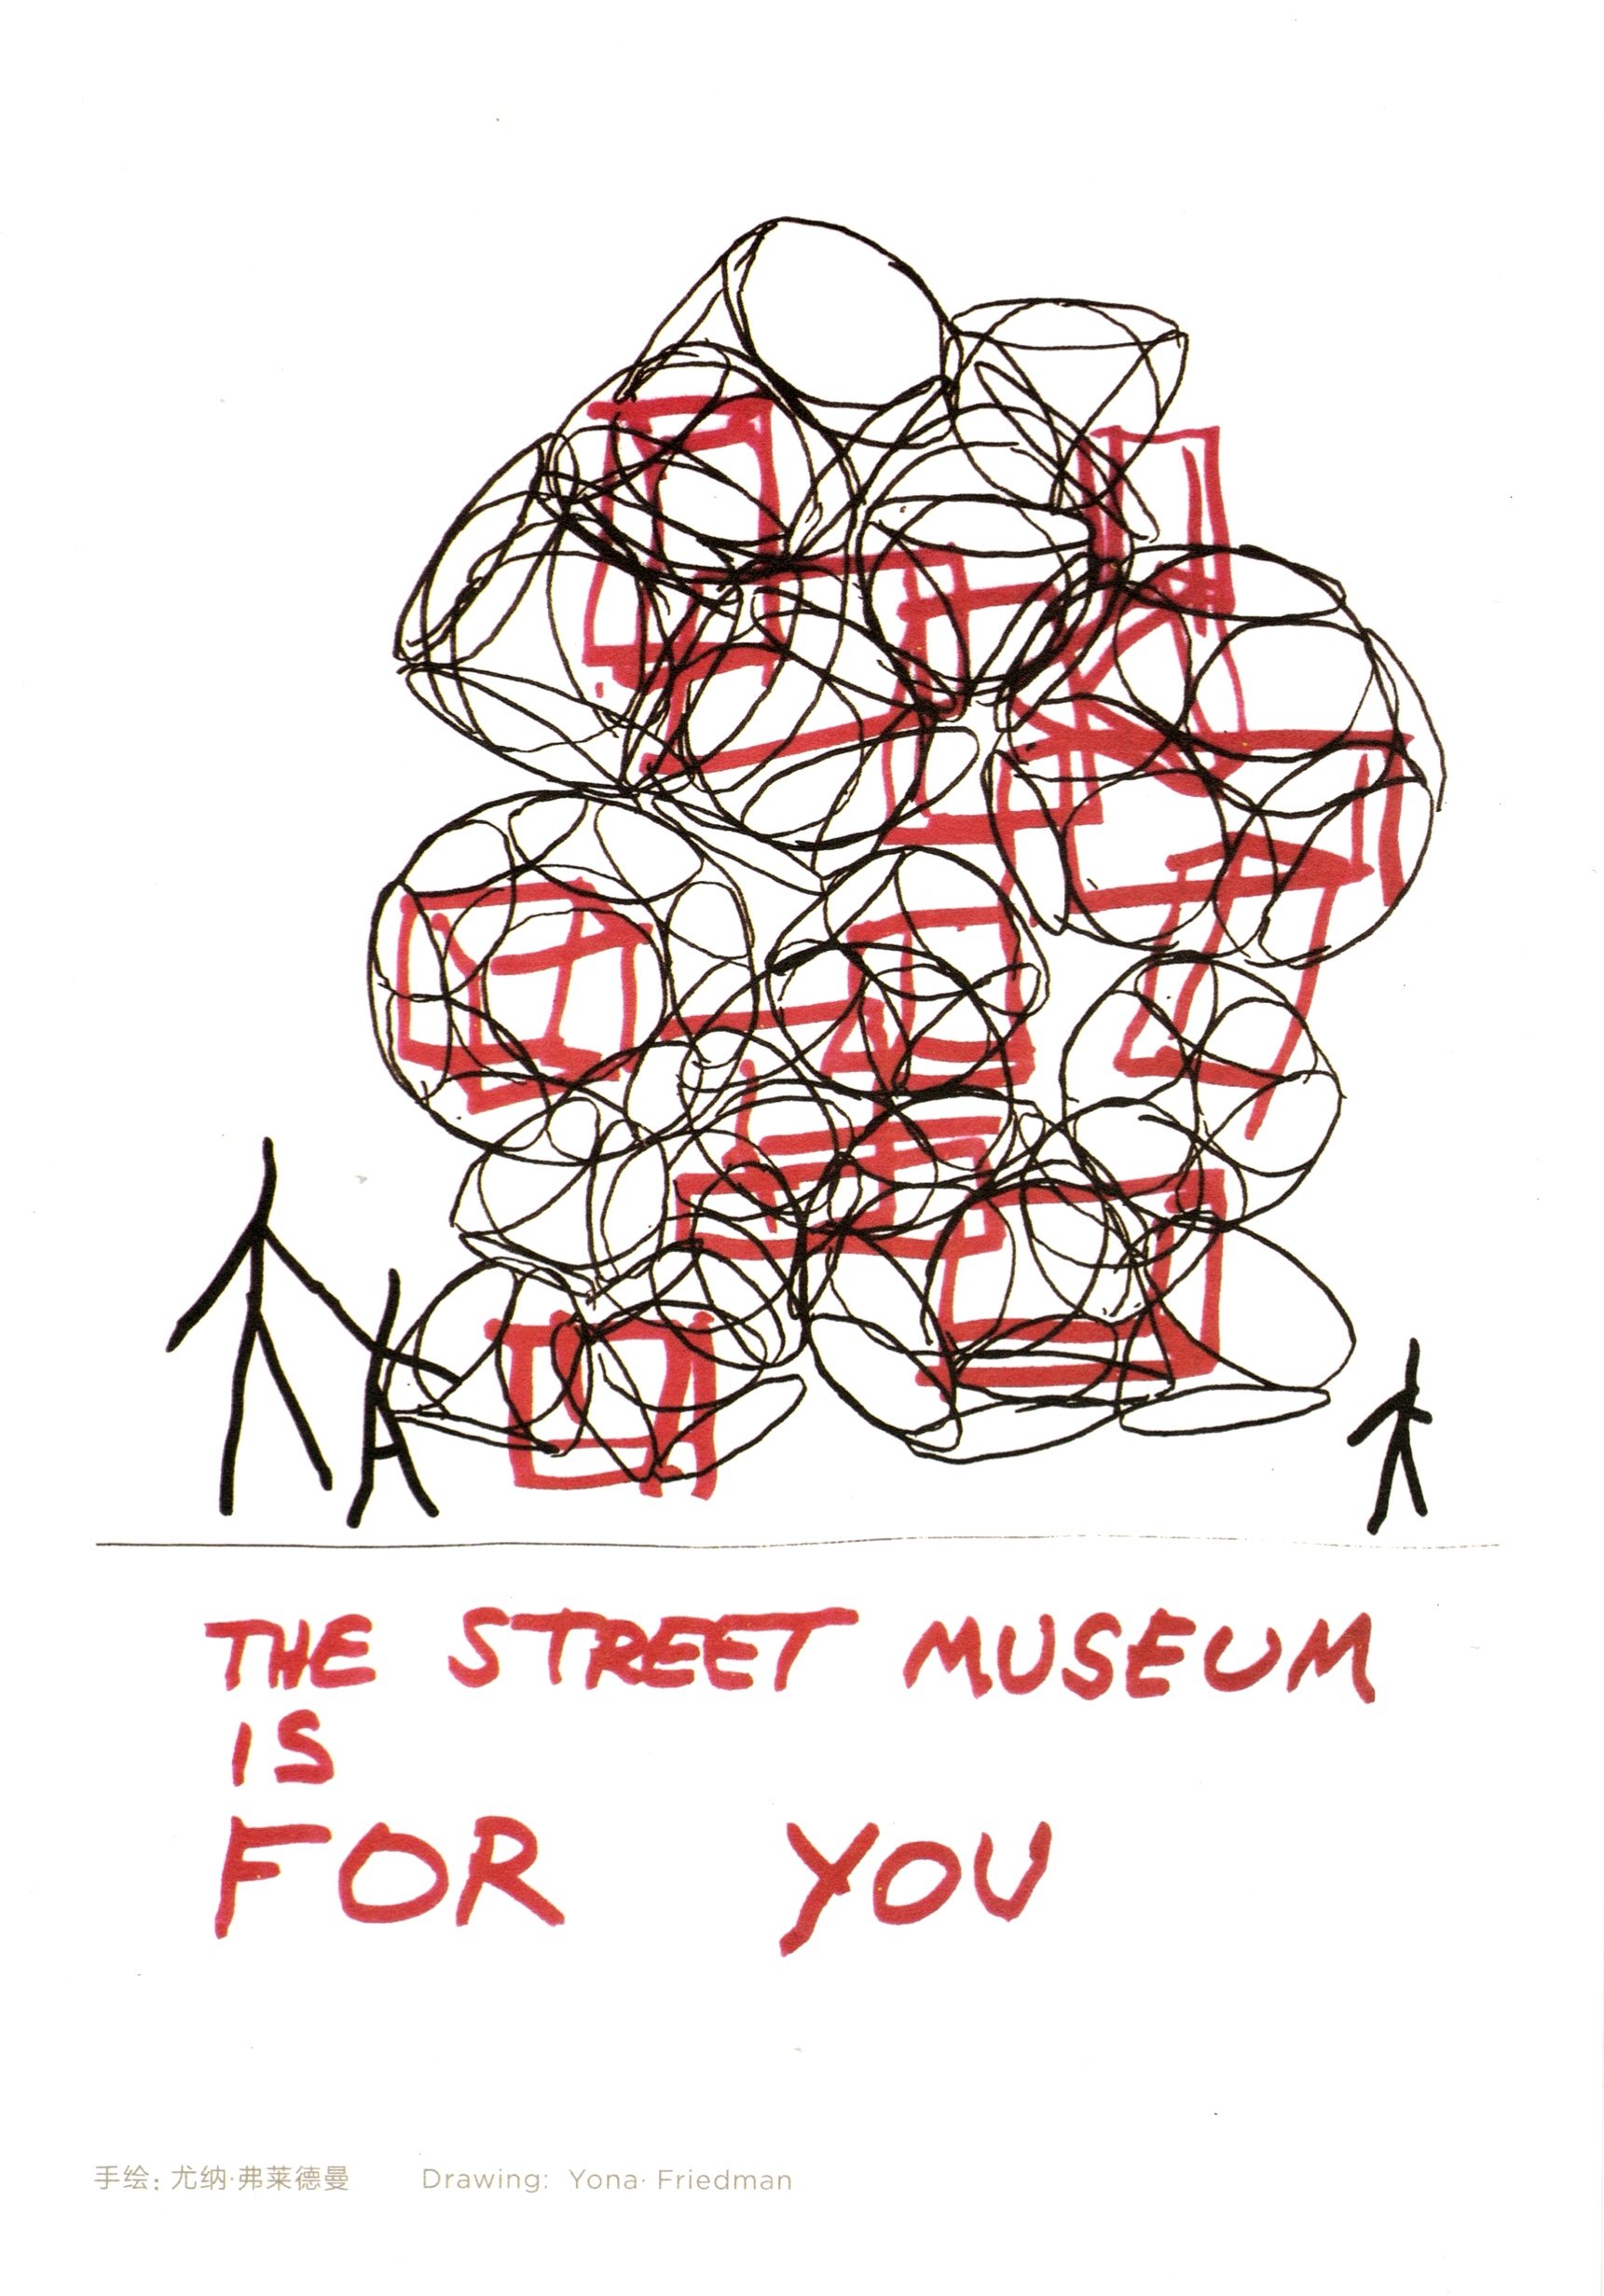 THE STREET MUSEUM
IS
FOR YOU
手绘: 尤纳·弗莱德曼 Drawing: Yona· Friedman